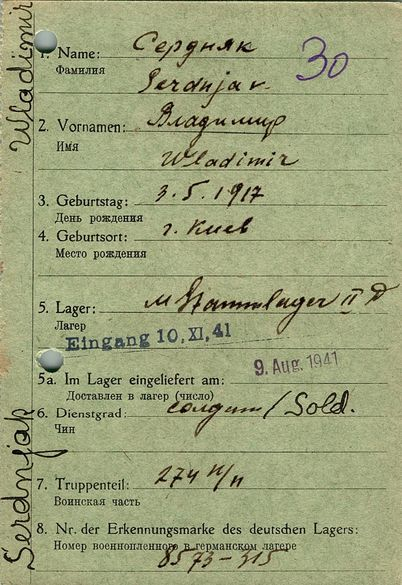 Wladimir
Serdnjak
30
1. Name: Сердняк
Фамилия
Serdnjak
2. Vornamen: Владимир
Имя
Wladimir
3. Geburtstag: 3.5.1917
День рождения
4. Geburtsort: г. Киев
Место рождения
5. Lager: M Stammlager II D
Лагерь
Eingang 10. XI. 41
9. Aug. 1941
5a. Im Lager eingeliefert am:
Доставлен в лагерь (число)
6. Dienstgrad: солдат / Sold.
Чин
7. Truppenteil: 274
Воинская часть
8. Nr. der Erkennungsmarke des deutschen Lagers:
Номер военнопленного в германском лагере
8573-315